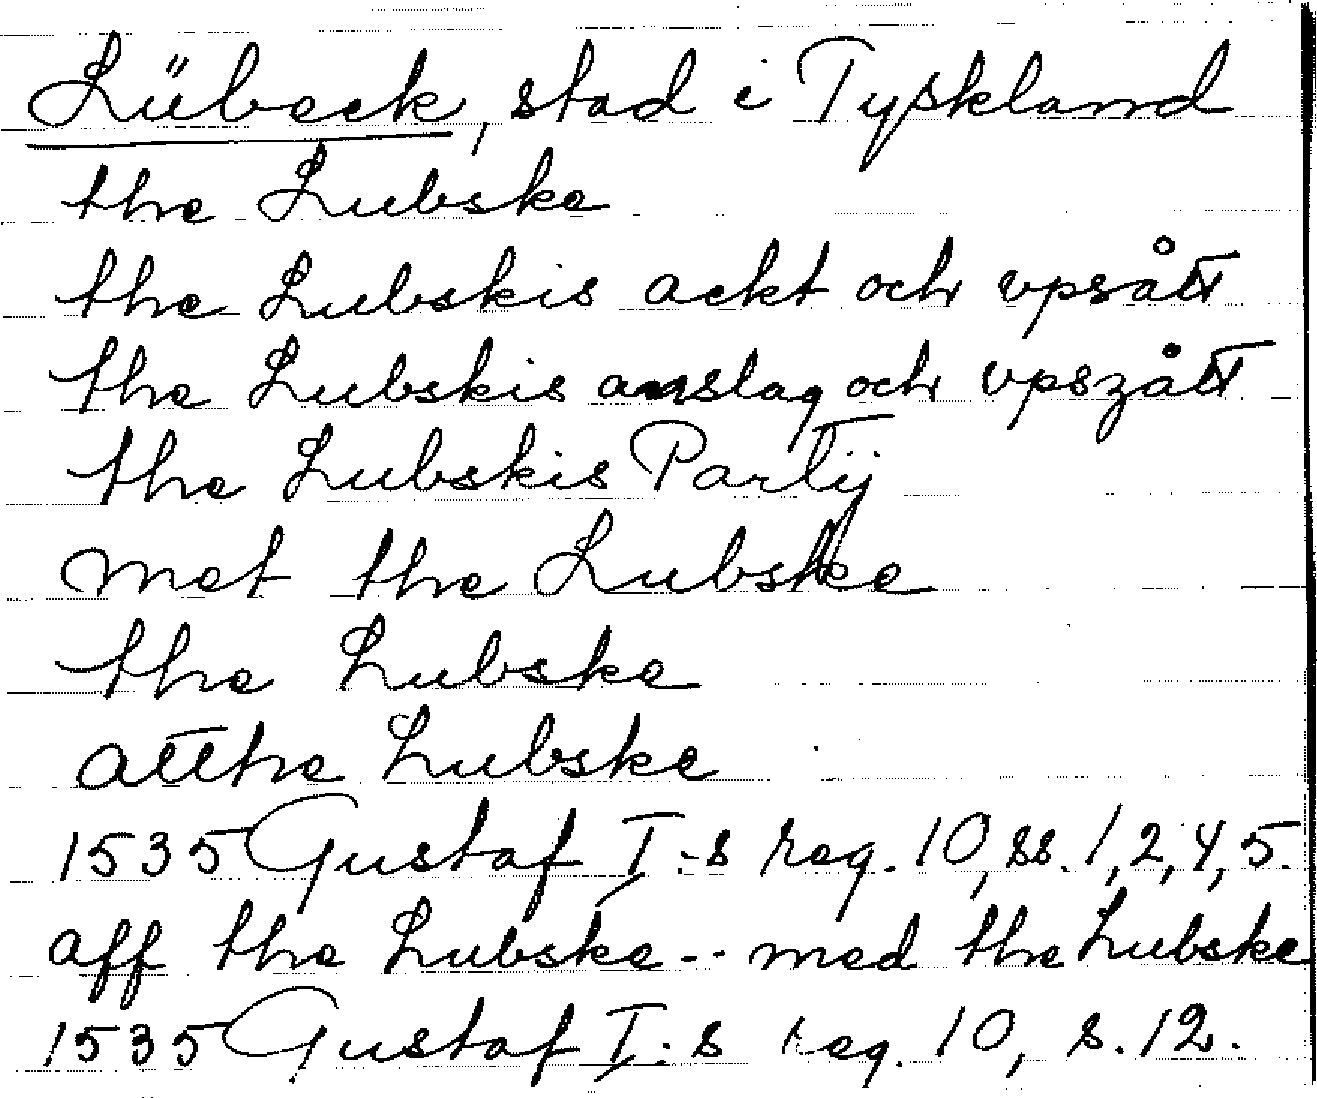 Lübeck, stad i Tyskland
the Lubske
the Lubskis ackt och vpsått
the Lubskis anslag och vpszått
the Lubskis Partij
met the Lubske
the Lubske
atthe Lubske
1535 Gustaf I:s reg. 10, ss. 1, 2, 4, 5.
aff the Lubske -- med the Lubske
1535 Gustaf I:s reg. 10, s. 12.